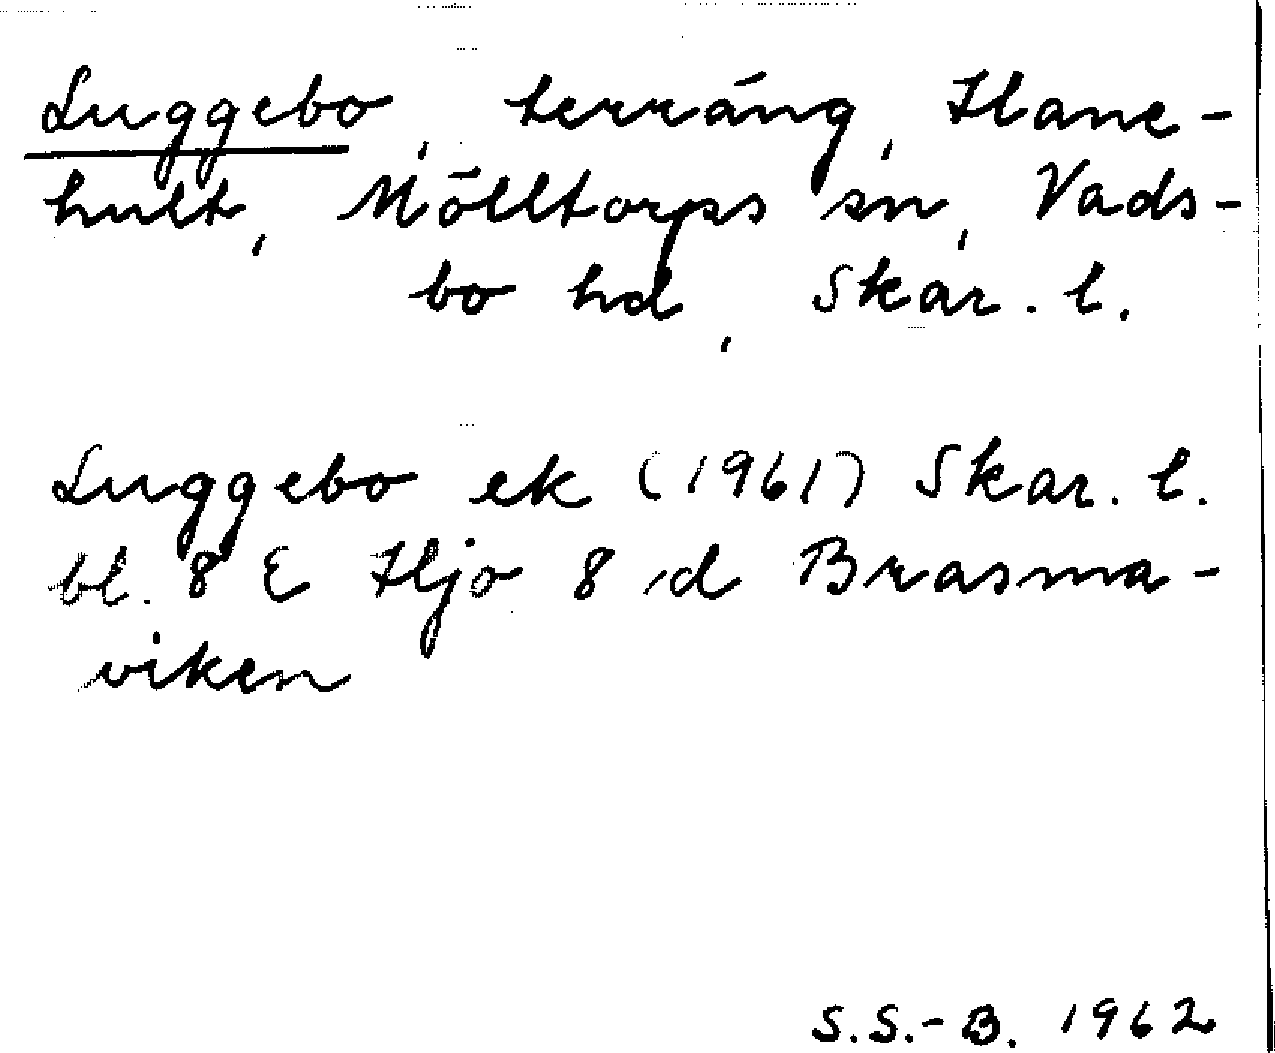 Luggebo, terräng, Hane-
hult, Mölltorps sn, Vads-
bo hd, Skar. l.
Luggebo ek (1961) Skar. l.
bl. 8 E Hjo 8 d Brasma-
viken
S.S.-B. 1962